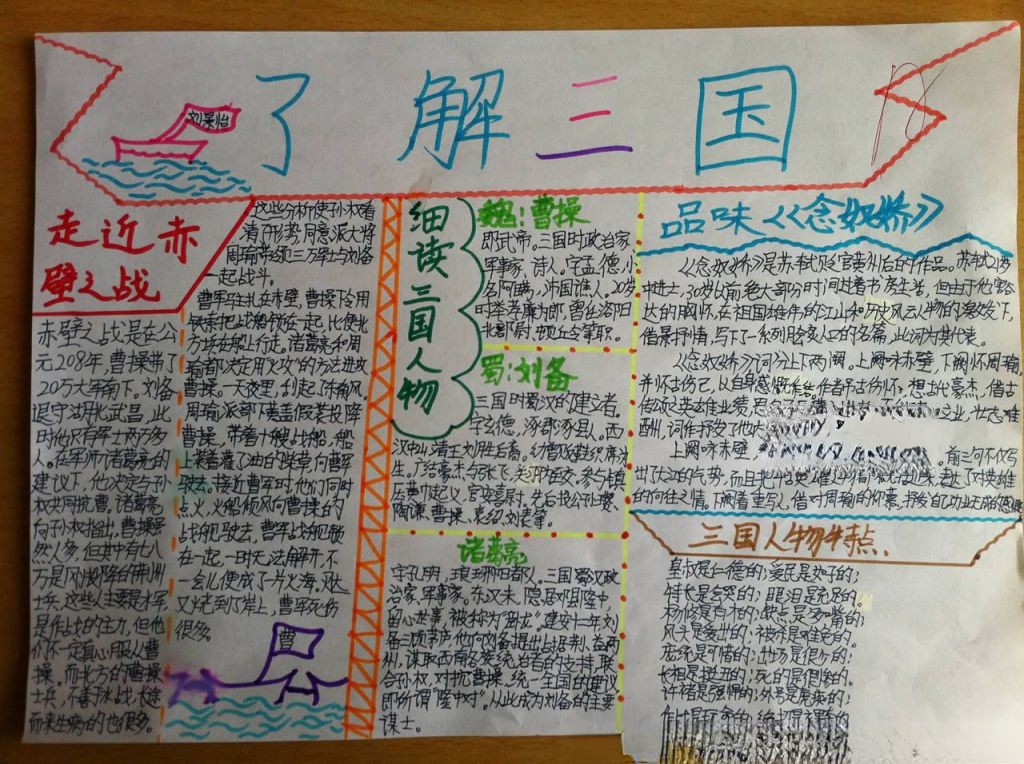 了解三国
走近赤
壁之战
赤壁之战是在公
元208年,曹操带了
20万大军南下。刘备
退守湖北武昌,此
时他只有军士两万多
人。在军师诸葛亮的
建议下,他决定与孙
权共同抗曹。诸葛亮
向孙权指出,曹操虽
然人多,但其中有七八
万是刚投降的荆州
士兵,这些人主要是水军,
是作战的主力,但他
们不一定真心服从曹
操,而北方的曹操
士兵,不善水战,大连
而来生病的也很多。
这些分析使孙权看
清了形势,同意派大将
周瑜带领三万军士与刘备
一起战斗。
曹军驻扎在赤壁,曹操下令用
铁索把战船锁在一起,以便北
方士兵在船上行走。诸葛亮和周
瑜都决定用火攻的方法进攻
曹操。一天夜里,刮起了东南风,
周瑜派部下黄盖假装投降
曹操,带着十艘战船,船
上装着灌了油的柴草,向曹军
驶去。接近曹军时,他们同时
点火,火船顺风向曹操的
战船驶去,曹军战船锁
在一起,一时无法解开,不
一会儿便成了一片火海。风火
又烧到了岸上,曹军死伤
很多。
曹
细读三国人物
魏:曹操
即武帝。三国时政治家、
军事家、诗人。字孟德,小
名阿瞒,沛国谯人。20岁
时举孝廉为郎,曾任洛阳
北部尉、顿丘令等职。
蜀:刘备
三国时蜀汉的建立者,
字玄德,涿郡涿县人。西
汉中山靖王刘胜后裔。幼贫,贩鞋织席为
生。广结豪杰与张飞、关羽相交,参与镇
压黄巾起义,官安喜尉,先后投公孙瓒、
陶谦、曹操、袁绍、刘表等。
诸葛亮
字孔明,琅琊阳都人。三国蜀汉政
治家、军事家。东汉末,隐居邓县隆中,
留心世事,被称为“卧龙”。建安十二年刘
备三顾茅庐,他向刘备提出占据荆、益两
州,谋取西南各族统治者的支持,联
合孙权,对抗曹操,统一全国的建议
即所谓“隆中对”。从此成为刘备的主要
谋士。
品味《念奴娇》
《念奴娇》是苏轼贬官黄州后的作品。苏轼21岁
中进士,30岁以前绝大部分时间过着书房生活,
达的胸怀,在祖国雄伟的江山和历史风云人物的激发下,
借景抒情,写下了一系列脍炙人口的名篇,此词为其代表。
《念奴娇》词分上下两阕。上阕咏赤壁,下阕怀周瑜,
并怀古伤己,以自身感慨作结。作者吊古伤怀,想古代豪杰,借古
传颂之英雄业绩,
酹,词作抒发了他
上阕咏赤壁,
出了大江的气势,
的向往之情。下阕着重写人,借对周瑜的仰慕,
三国人物特点
皇叔是仁德的;爱民是如子的;
特长是会哭的;眼泪是充足的。
杨修是有才的;缺点是多嘴的;
庞统是可惜的;出场是很少的;
长相是
许褚是强悍的;外号是虎痴的;